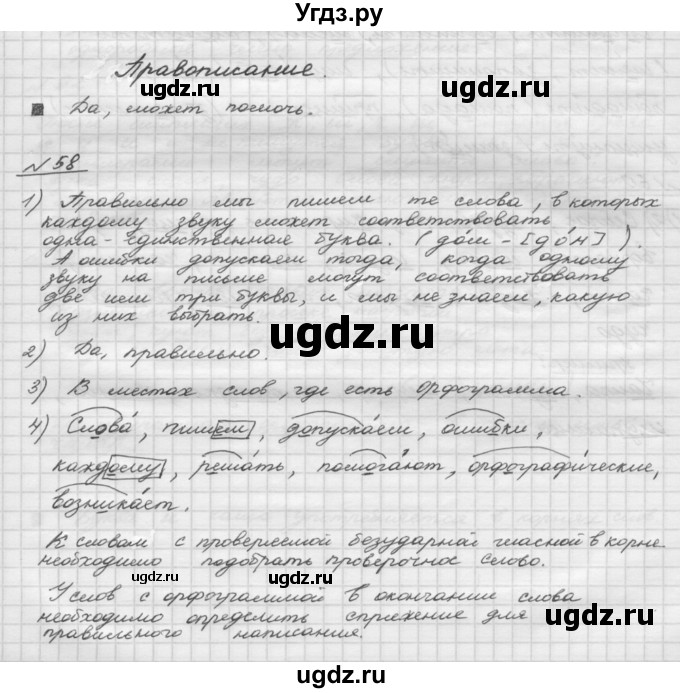 Угдз.ру
Правописание.
Да, может помочь.
№58
1) Правильно мы пишем те слова, в которых
каждому звуку может соответствовать
одна-единственная буква. (до́м - [до́м]).
А ошибки допускаем тогда, когда одному
звуку на письме могут соответствовать
две или три буквы, и мы не знаем, какую
из них выбрать.
ugdz.ru
2) Да, правильно.
ugdz.ru
3) В местах слов, где есть орфограмма.
4) Слова́, пишем, допуска́ем, оши́бки,
каждому, реша́ть, помога́ют, орфографи́ческие,
возника́ет.
ugdz.ru
К словам с проверяемой безударной гласной в корне
необходимо подобрать проверочное слово.
У слов с орфограммой в окончании слова
необходимо определить спряжение для
правильного написания.
ugdz.ru
ugdz.ru